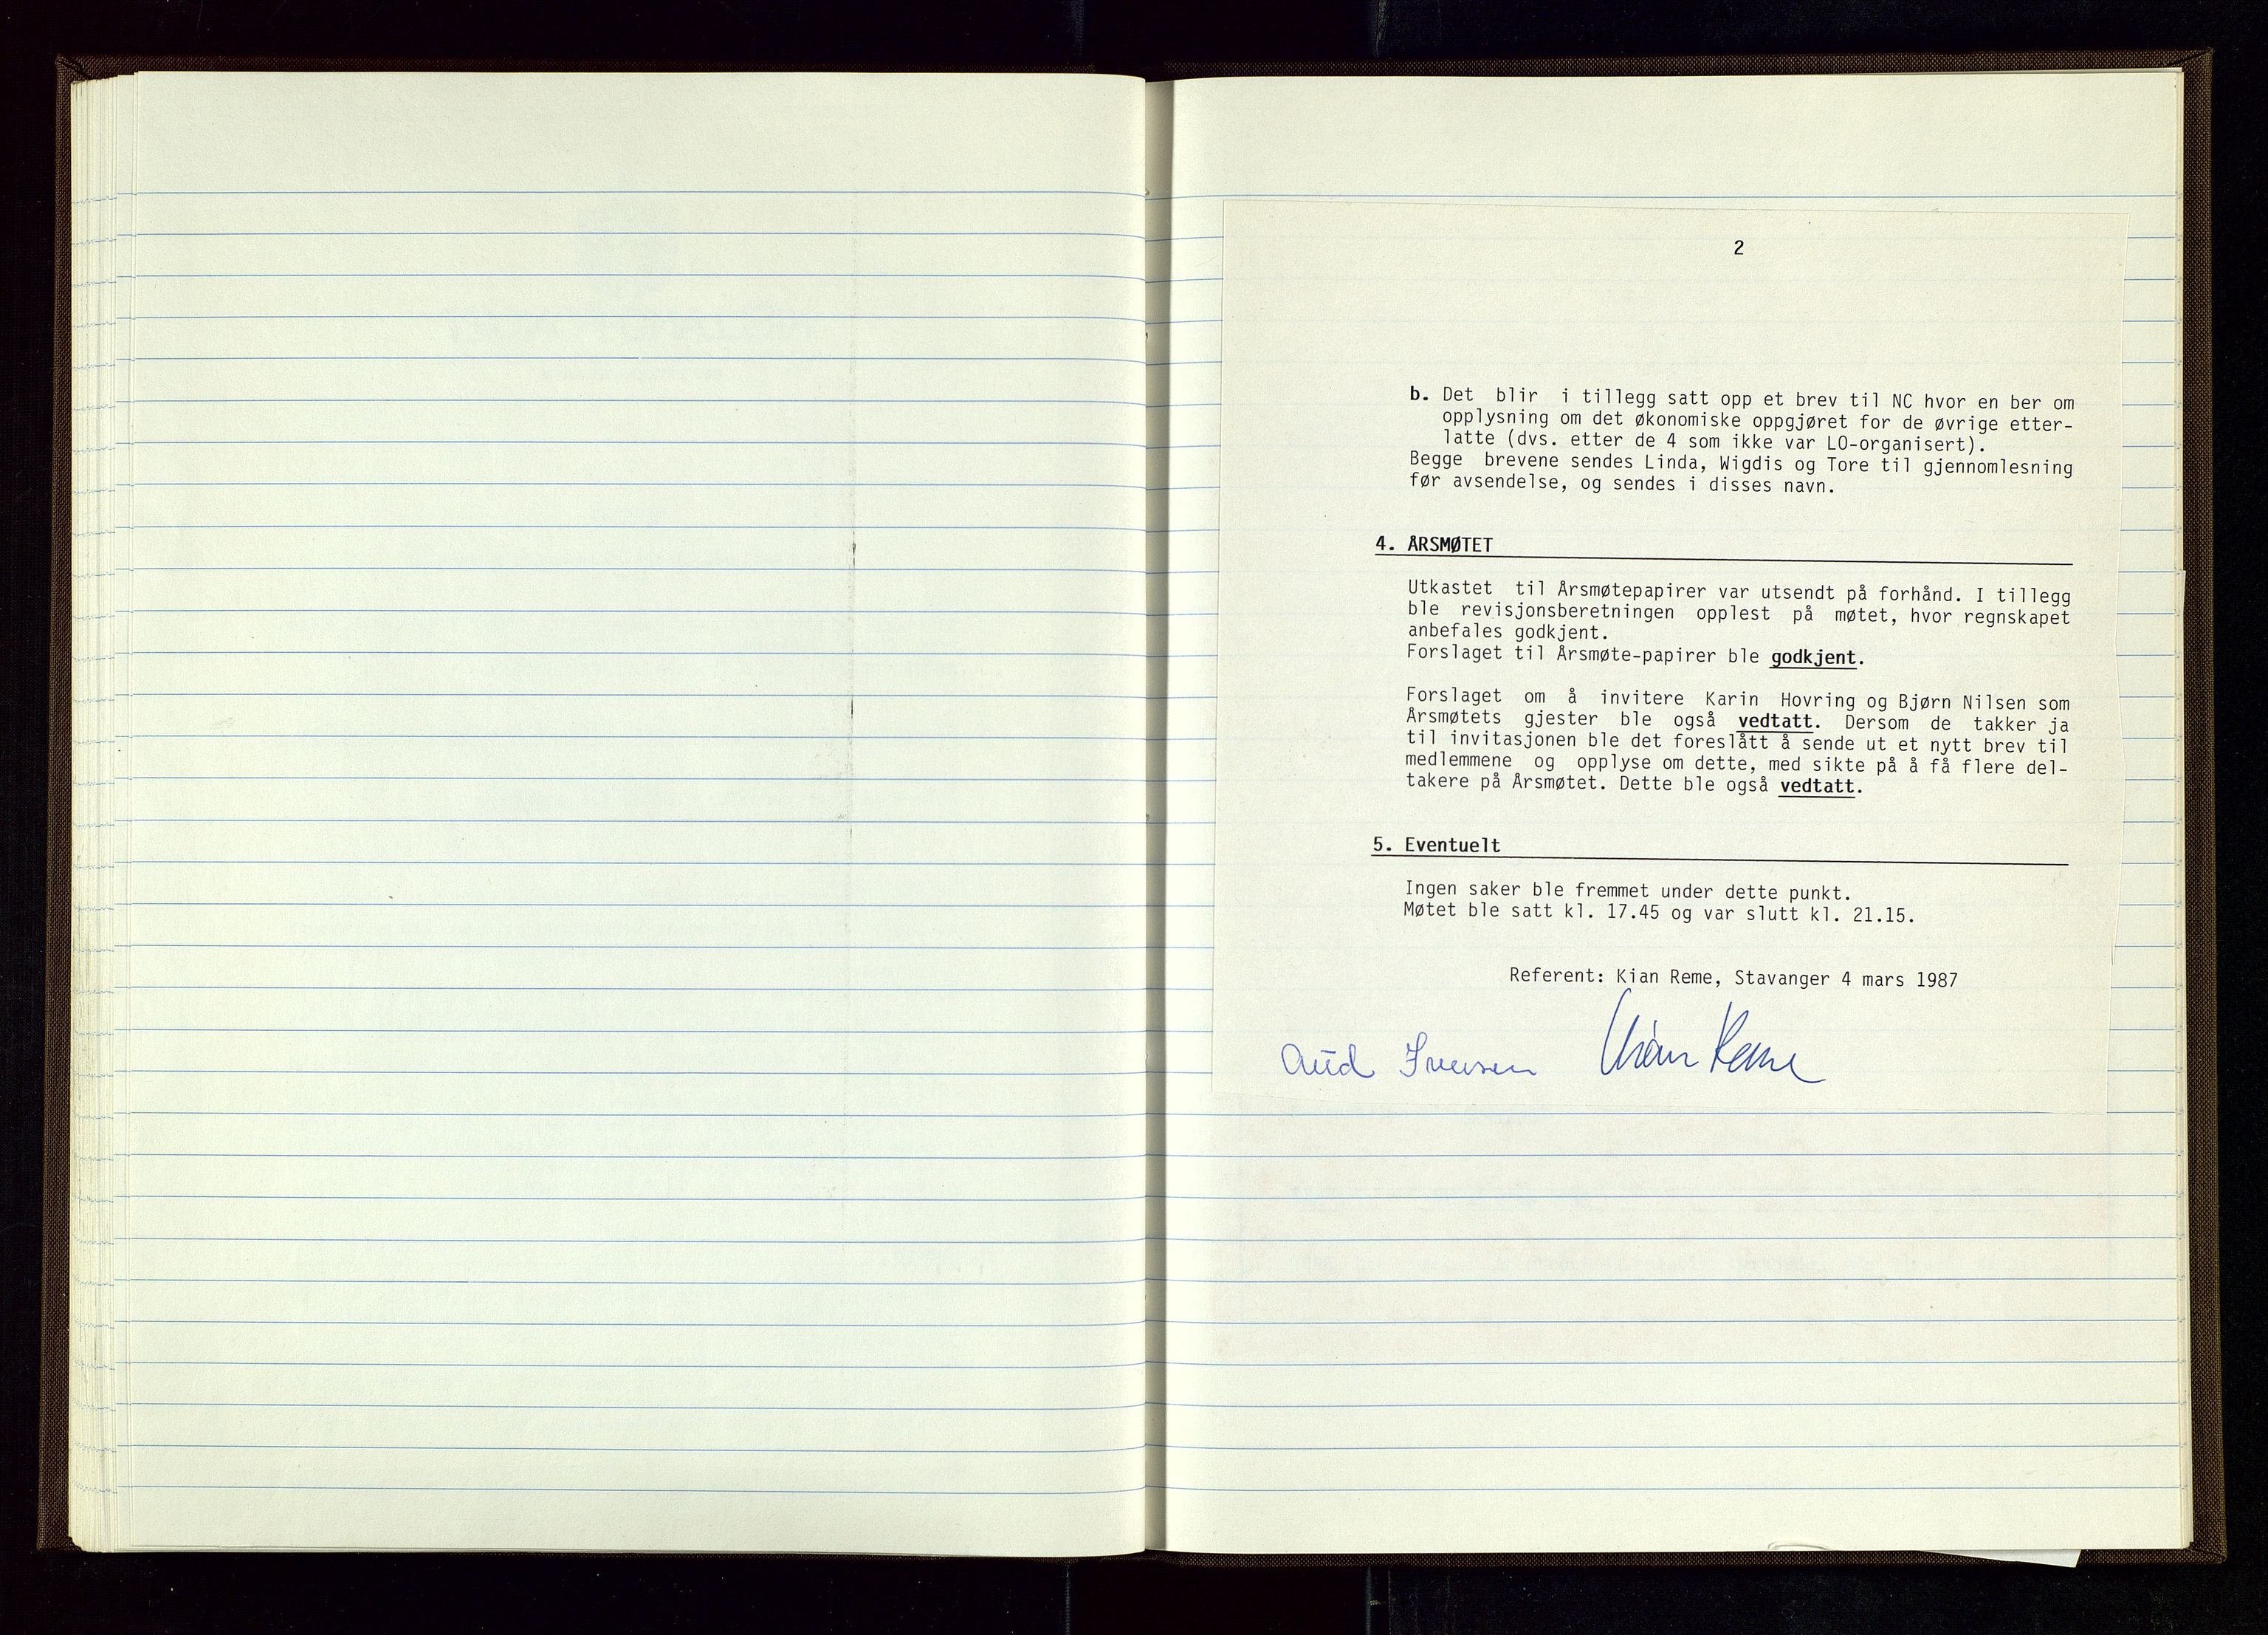 2
b. Det blir i tillegg satt opp et brev til NC hvor en ber om
opplysning om det økonomiske oppgjøret for de øvrige etter-
latte (dvs. etter de 4 som ikke var LO-organisert).
Begge brevene sendes Linda, Wigdis og Tore til gjennomlesning
før avsendelse, og sendes i disses navn.
4. ÅRSMØTET
Utkastet til Årsmøtepapirer var utsendt på forhånd. I tillegg
ble revisjonsberetningen opplest på møtet, hvor regnskapet
anbefales godkjent.
Forslaget til Årsmøte-papirer ble godkjent.
Forslaget om å invitere Karin Hovring og Bjørn Nilsen som
Årsmøtets gjester ble også vedtatt. Dersom de takker ja
til invitasjonen ble det foreslått å sende ut et nytt brev til
medlemmene og opplyse om dette, med sikte på å få flere del-
takere på Årsmøtet. Dette ble også vedtatt.
5. Eventuelt
Ingen saker ble fremmet under dette punkt.
Møtet ble satt kl. 17.45 og var slutt kl. 21.15.
Referent: Kian Reme, Stavanger 4 mars 1987
Aud Iversen Kian Reme